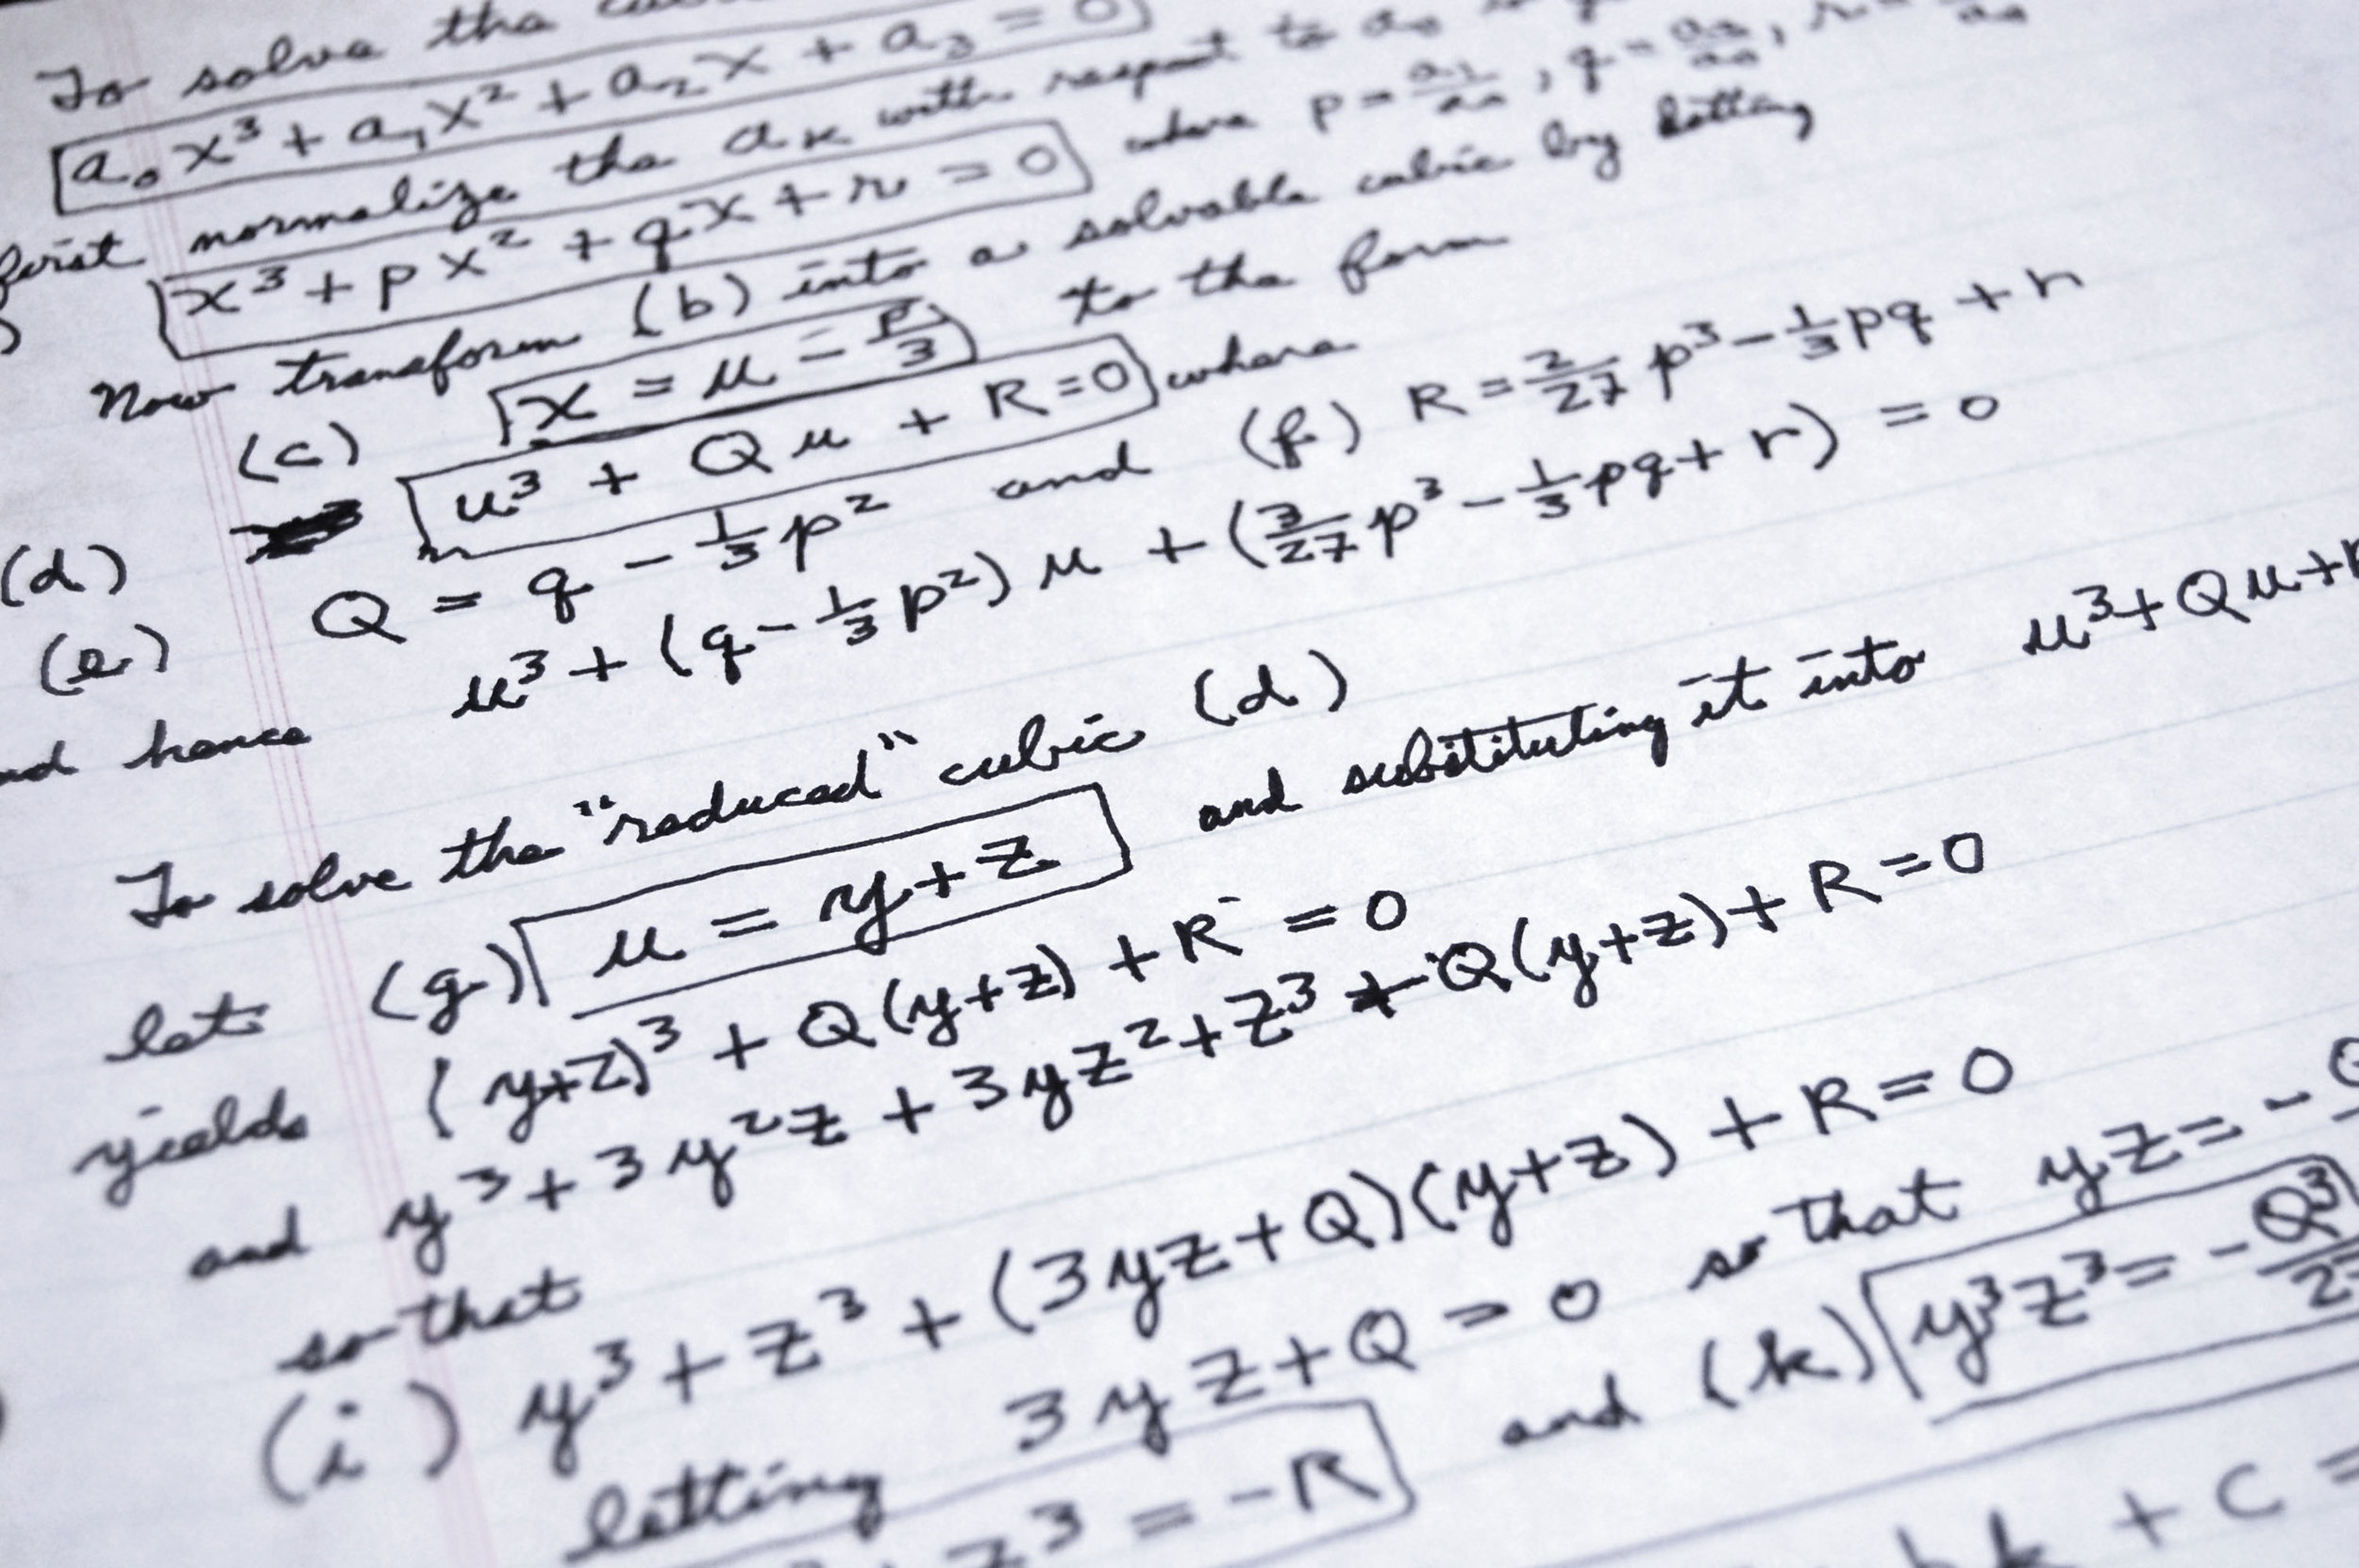 To solve the
a₀x³ + a₁x² + a₂x + a₃ = 0
first normalize the aₖ with respect to a₀
x³ + px² + qx + r = 0 where p = a₁/a₀, q = a₂/a₀, r =
Now transform (b) into a solvable cubic by letting
(c) x = u - p/3 to the form
(d) u³ + Qu + R = 0 where
(e) Q = q - 1/3 p² and (f) R = 2/27 p³ - 1/3 pq + r
and hence u³ + (q - 1/3 p²) u + (3/27 p³ - 1/3 pq + r) = 0
To solve the "reduced" cubic (d)
let (g) u = y + z and substituting it into u³ + Qu +
yields (y+z)³ + Q(y+z) + R = 0
and y³ + 3y²z + 3yz² + z³ + Q(y+z) + R = 0
so that
(i) y³ + z³ + (3yz + Q)(y+z) + R = 0
letting 3yz + Q = 0 so that yz = -
z³ = -R and (k) y³z³ = -Q³/2
k + c =